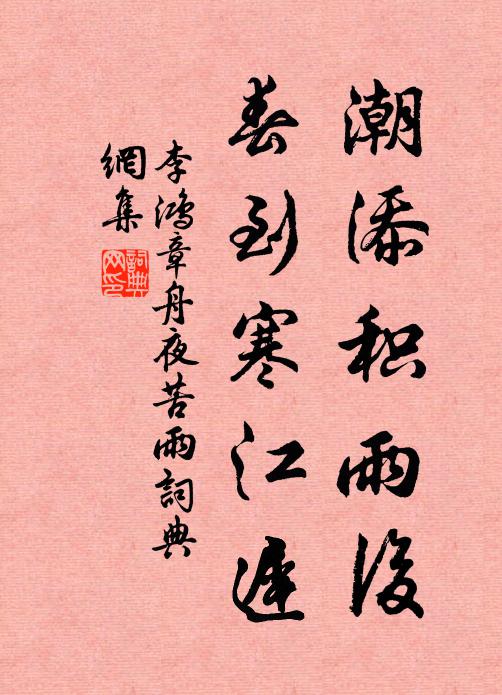 潮添积雨后
春到寒江遲
李鴻章舟夜苦雨詞典
網集
詞典
网印